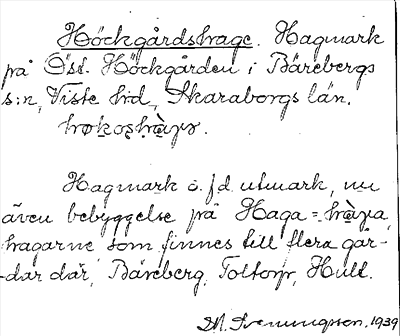 Höckgårdshage. Hagmark
på Öst. Höckgården i Bärebergs
s:n, Viste hd, Skaraborgs län.
Hagmark o. f.d. utmark, nu
även bebyggelse på Haga =
hagarne som finnes till flera går-
dar där, Bäreberg, Toltorp, Hult.
1939